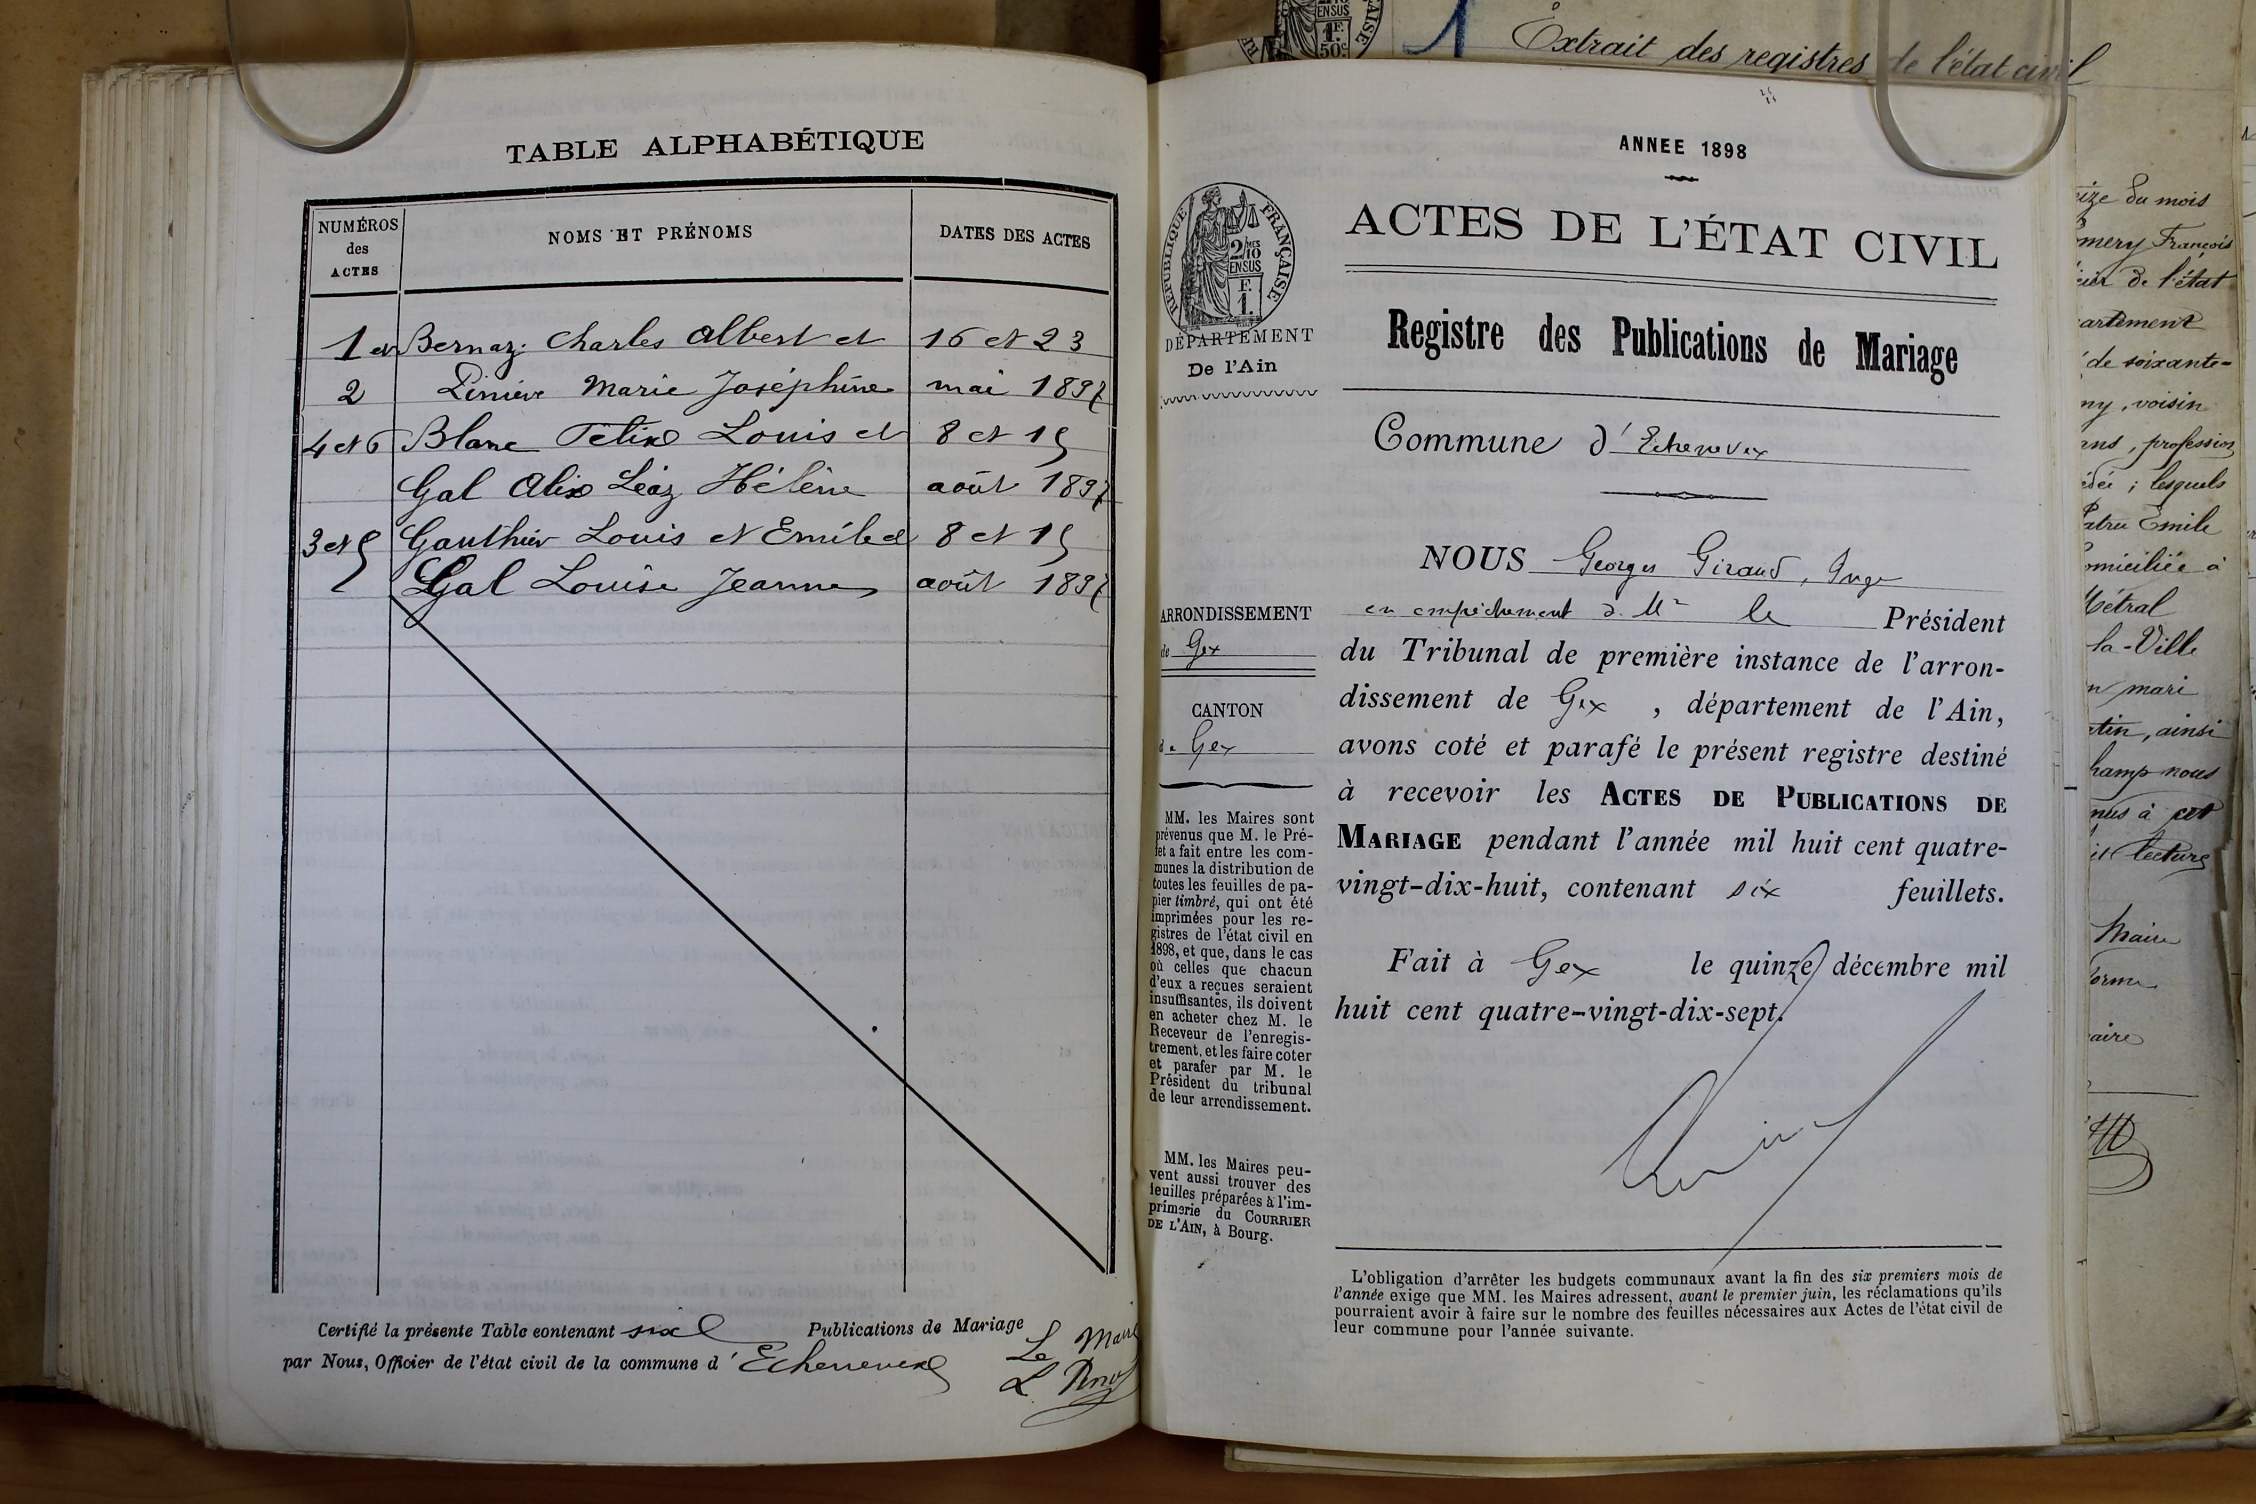 TABLE ALPHABÉTIQUE
NUMÉROS
des
ACTES
NOMS ET PRÉNOMS
DATES DES ACTES
1 et Bernaz Charles Albert et 16 et 23
2 Marie Joséphine mai 1897
4 et 6 Blanc Félix Louis et 8 et 15
Gal Alix Léaz Hélène août 1897
3 et 5 Gauthier Louis et Emile et 8 et 15
Gal Louise Jeanne août 1897
Certifié la présente Table contenant six Publications de Mariage
par Nous, Officier de l'état civil de la commune d'Echenevex
Le Maire
1
Extrait des registres de l'état civil
ENSUS
1F.
50c
ANNEE 1898
ACTES DE L'ÉTAT CIVIL
RÉPUBLIQUE FRANÇAISE
2/10 MES
EN SUS
F.
1.
DÉPARTEMENT
De l'Ain
Registre des Publications de Mariage
Commune d'Echenevex
NOUS Georges Giraud, Juge
en empêchement d. Mr le Président
du Tribunal de première instance de l'arron-
dissement de Gex , département de l'Ain,
avons coté et parafé le présent registre destiné
à recevoir les ACTES DE PUBLICATIONS DE
MARIAGE pendant l'année mil huit cent quatre-
vingt-dix-huit, contenant six feuillets.
Fait à Gex le quinze décembre mil
huit cent quatre-vingt-dix-sept.
ARRONDISSEMENT
de Gex
CANTON
de Gex
MM. les Maires sont
prévenus que M. le Pré-
fet a fait entre les com-
munes la distribution de
toutes les feuilles de pa-
pier timbré, qui ont été
imprimées pour les re-
gistres de l'état civil en
1898, et que, dans le cas
où celles que chacun
d'eux a reçues seraient
insuffisantes, ils doivent
en acheter chez M. le
Receveur de l'enregis-
trement, et les faire coter
et parafer par M. le
Président du tribunal
de leur arrondissement.
MM. les Maires peu-
vent aussi trouver des
feuilles préparées à l'im-
primerie du COURRIER
DE L'AIN, à Bourg.
L'obligation d'arrêter les budgets communaux avant la fin des six premiers mois de
l'année exige que MM. les Maires adressent, avant le premier juin, les réclamations qu'ils
pourraient avoir à faire sur le nombre des feuilles nécessaires aux Actes de l'état civil de
leur commune pour l'année suivante.
du mois
François
de l'état
de soixante-
ny, voisin
ans, profession
; lesquels
Emile
à
Métral
la-Ville
mari
, ainsi
nous
à cet
lecture
Maire